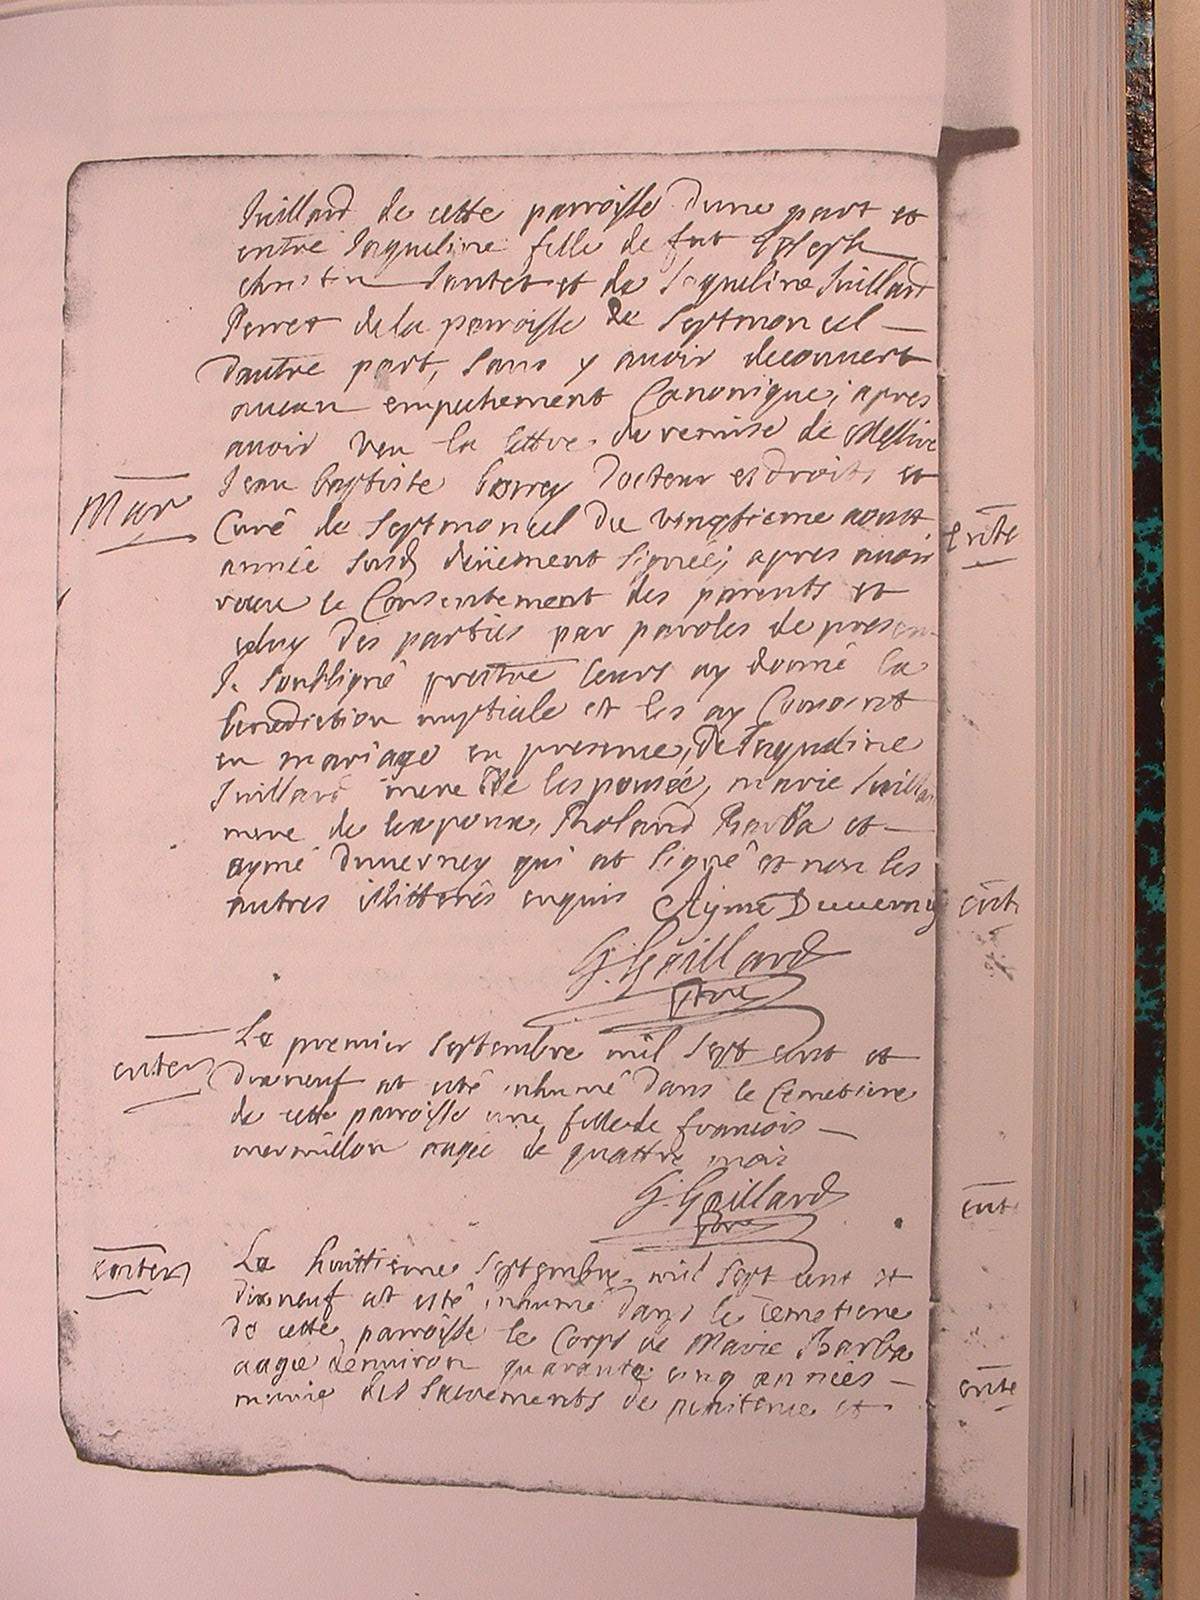 Juillard de cette parroisse dune part et
entre Jaqueline fille de fut Joseph
christin Lantet et de Jaqueline Juillard
Perret de la parroisse de Septmoncel
dautre part, sans y avoir decouvert
aucun empechement Canonique; apres
avoir veu la lettre de remise de Messire
Jean baptiste Docteur es droits et
Mar
Curé de Septmoncel du vingtieme aoust
année susd deüement signée; apres avoir
veu le Consentement des parents et
celuy des parties par paroles de presen
Je soubsigné preitre leurs ay donné la
benediction nuptiale et les ay Conjoint
en mariage en presence, de Jaqueline
Juillard mere de lespousée, marie Juillar
mere de lespoux, Roland Barba et
aymé Duverney qui at signé et non les
autres illitterés enquis Ayme Duverney
G. Gaillard
ptre
Le premier septembre mil sept cent et
enter
dixneuf at esté inhumé dans le Cemetiere
de cette parroisse une fille de francois
mermillon aagée de quattre mois
G. Gaillard
ptre
enter
Le huittieme septembre mil sept cent et
dixneuf at esté inhumé dans le cemetiere
de cette parroisse le Corps de Marie Barba
aagée denviron quarante cinq années
munie des sacrements de penitence et